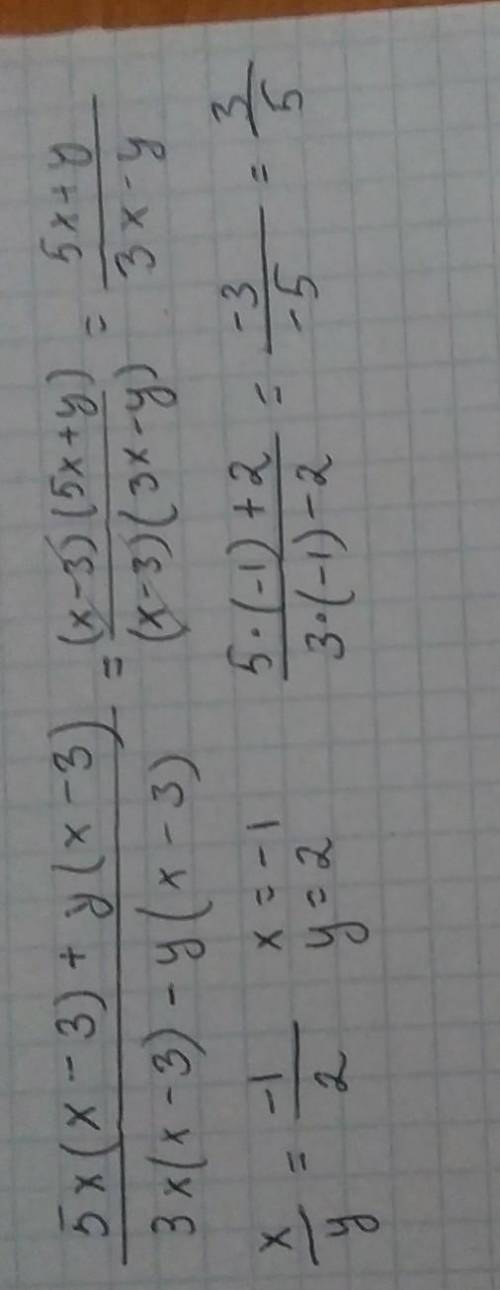 (5x(x-3)+y(x-3))/(3x(x-3)-y(x-3)) = ((x-3)(5x+y))/((x-3)(3x-y)) = (5x+y)/(3x-y)
x/y = -1/2   x=-1   (5·(-1)+2)/(3·(-1)-2) = -3/-5 = 3/5
y=2